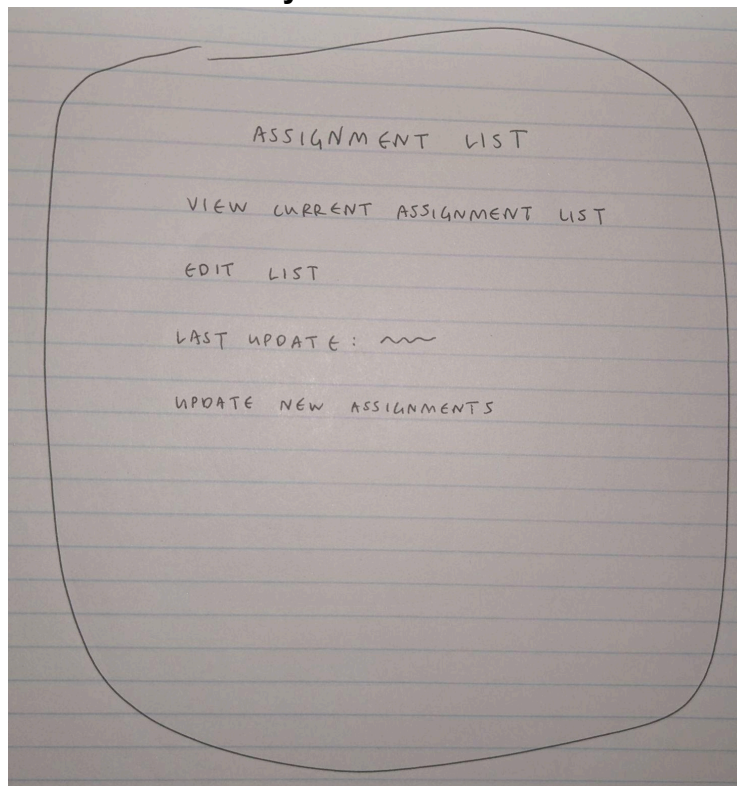 ASSIGNMENT LIST
VIEW CURRENT ASSIGNMENT LIST
EDIT LIST
LAST UPDATE:
UPDATE NEW ASSIGNMENTS